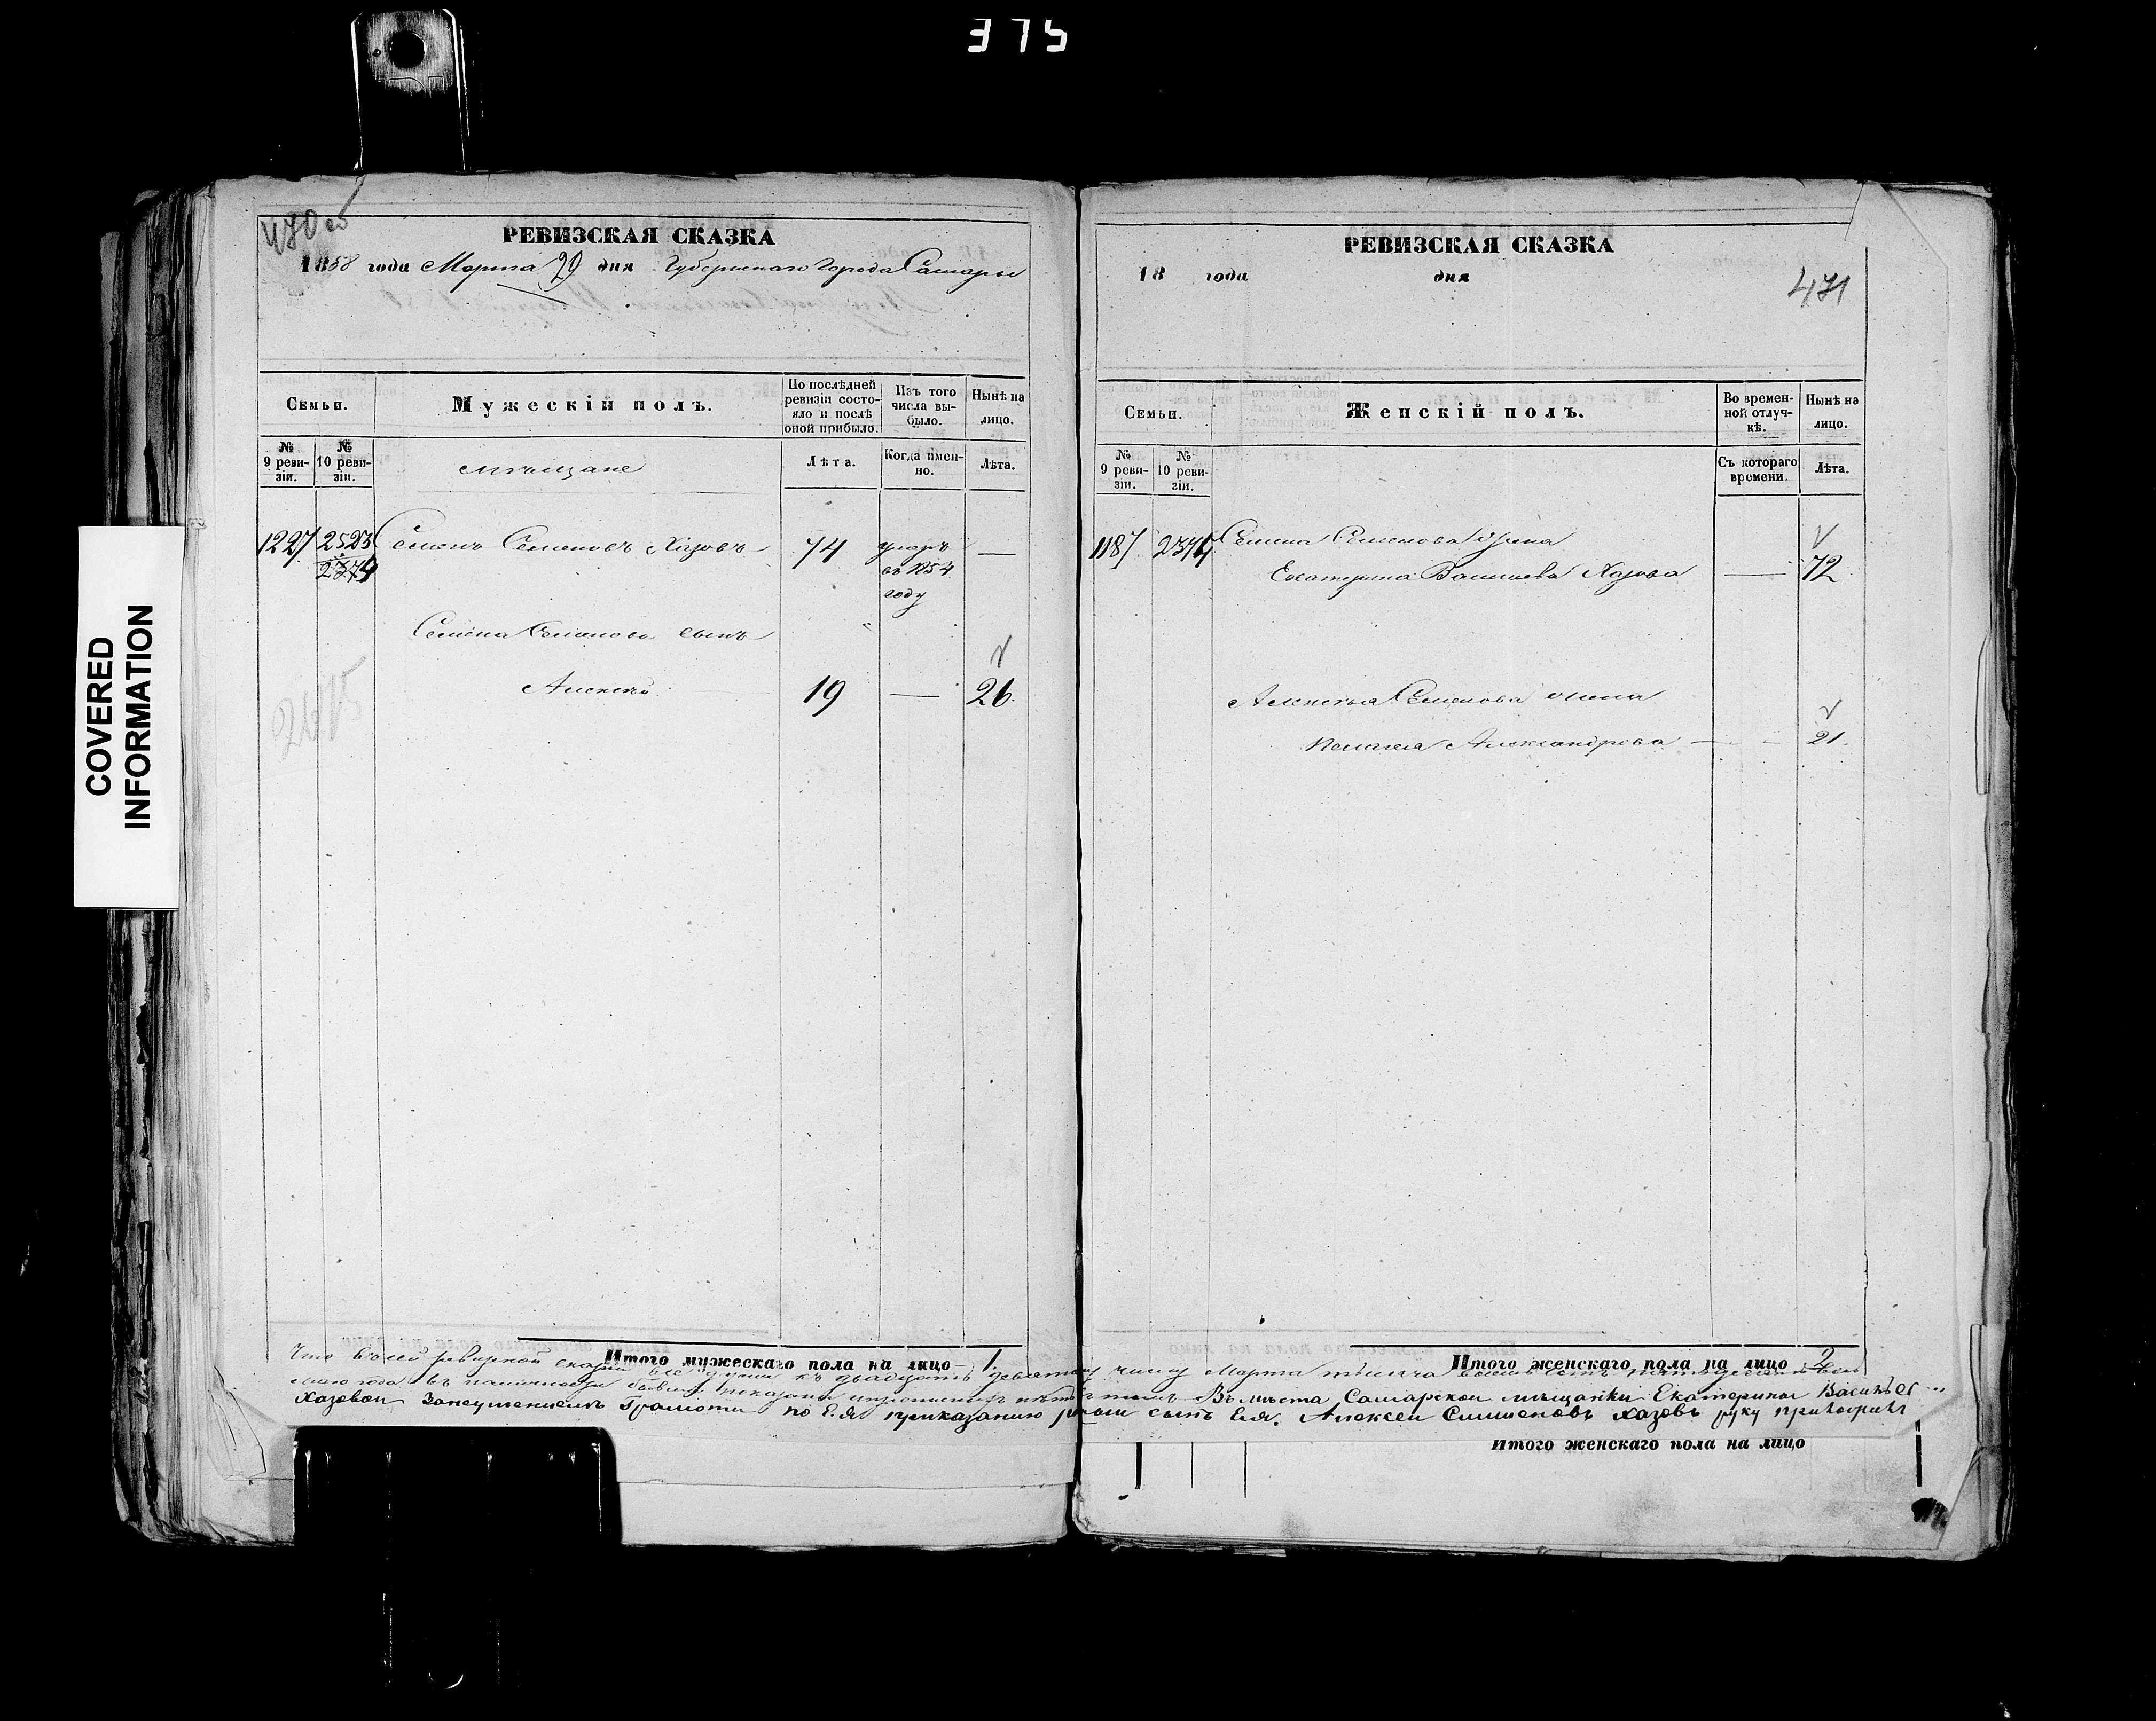 375
COVERED
INFORMATION
470 об
РЕВИЗСКАЯ СКАЗКА
1858 года Марта 29 дня Губернскаго Города Самары
Семьи.
Мужескій полъ.
По послѣдней ревизіи состояло и послѣ оной прибыло.
Изъ того числа выбыло.
Нынѣ на лицо.
№ 9 ревизіи.
№ 10 ревизіи.
мѣщане
Лѣта.
Когда именно.
Лѣта.
1227 2523 Семенъ Семеновъ Хазовъ 74 умеръ —
2374 въ 1854
году
Семена Семенова сынъ
Алексѣй 19 — 26.
2475
Итого мужескаго пола на лицо 1.
РЕВИЗСКАЯ СКАЗКА
18 года дня
471
Семьи.
Женскій полъ.
Во временной отлучкѣ.
Нынѣ на лицо.
№ 9 ревизіи.
№ 10 ревизіи.
Съ котораго времени.
Лѣта.
1187 2374 Семена Семенова жена
Екатерина Васильева Хазова — 72
Алексѣя Семенова жена
Пелагея Александрова — 21.
Итого женскаго пола на лицо 2
Что въ сей ревизкой сказки все души къ двадцать девятому числу Марта тысяча восемь сотъ пятьдесятъ
года въ наличности бывшія показаны и прописныхъ нѣтъ въ томъ Вомѣста Самарской мѣщанки Екатерины Василье
Хазовой Занеумениемъ Грамоти по Ея приказанию сынъ Ея. Алексеи Симионовъ Хазовъ руку приложилъ
Итого женскаго пола на лицо